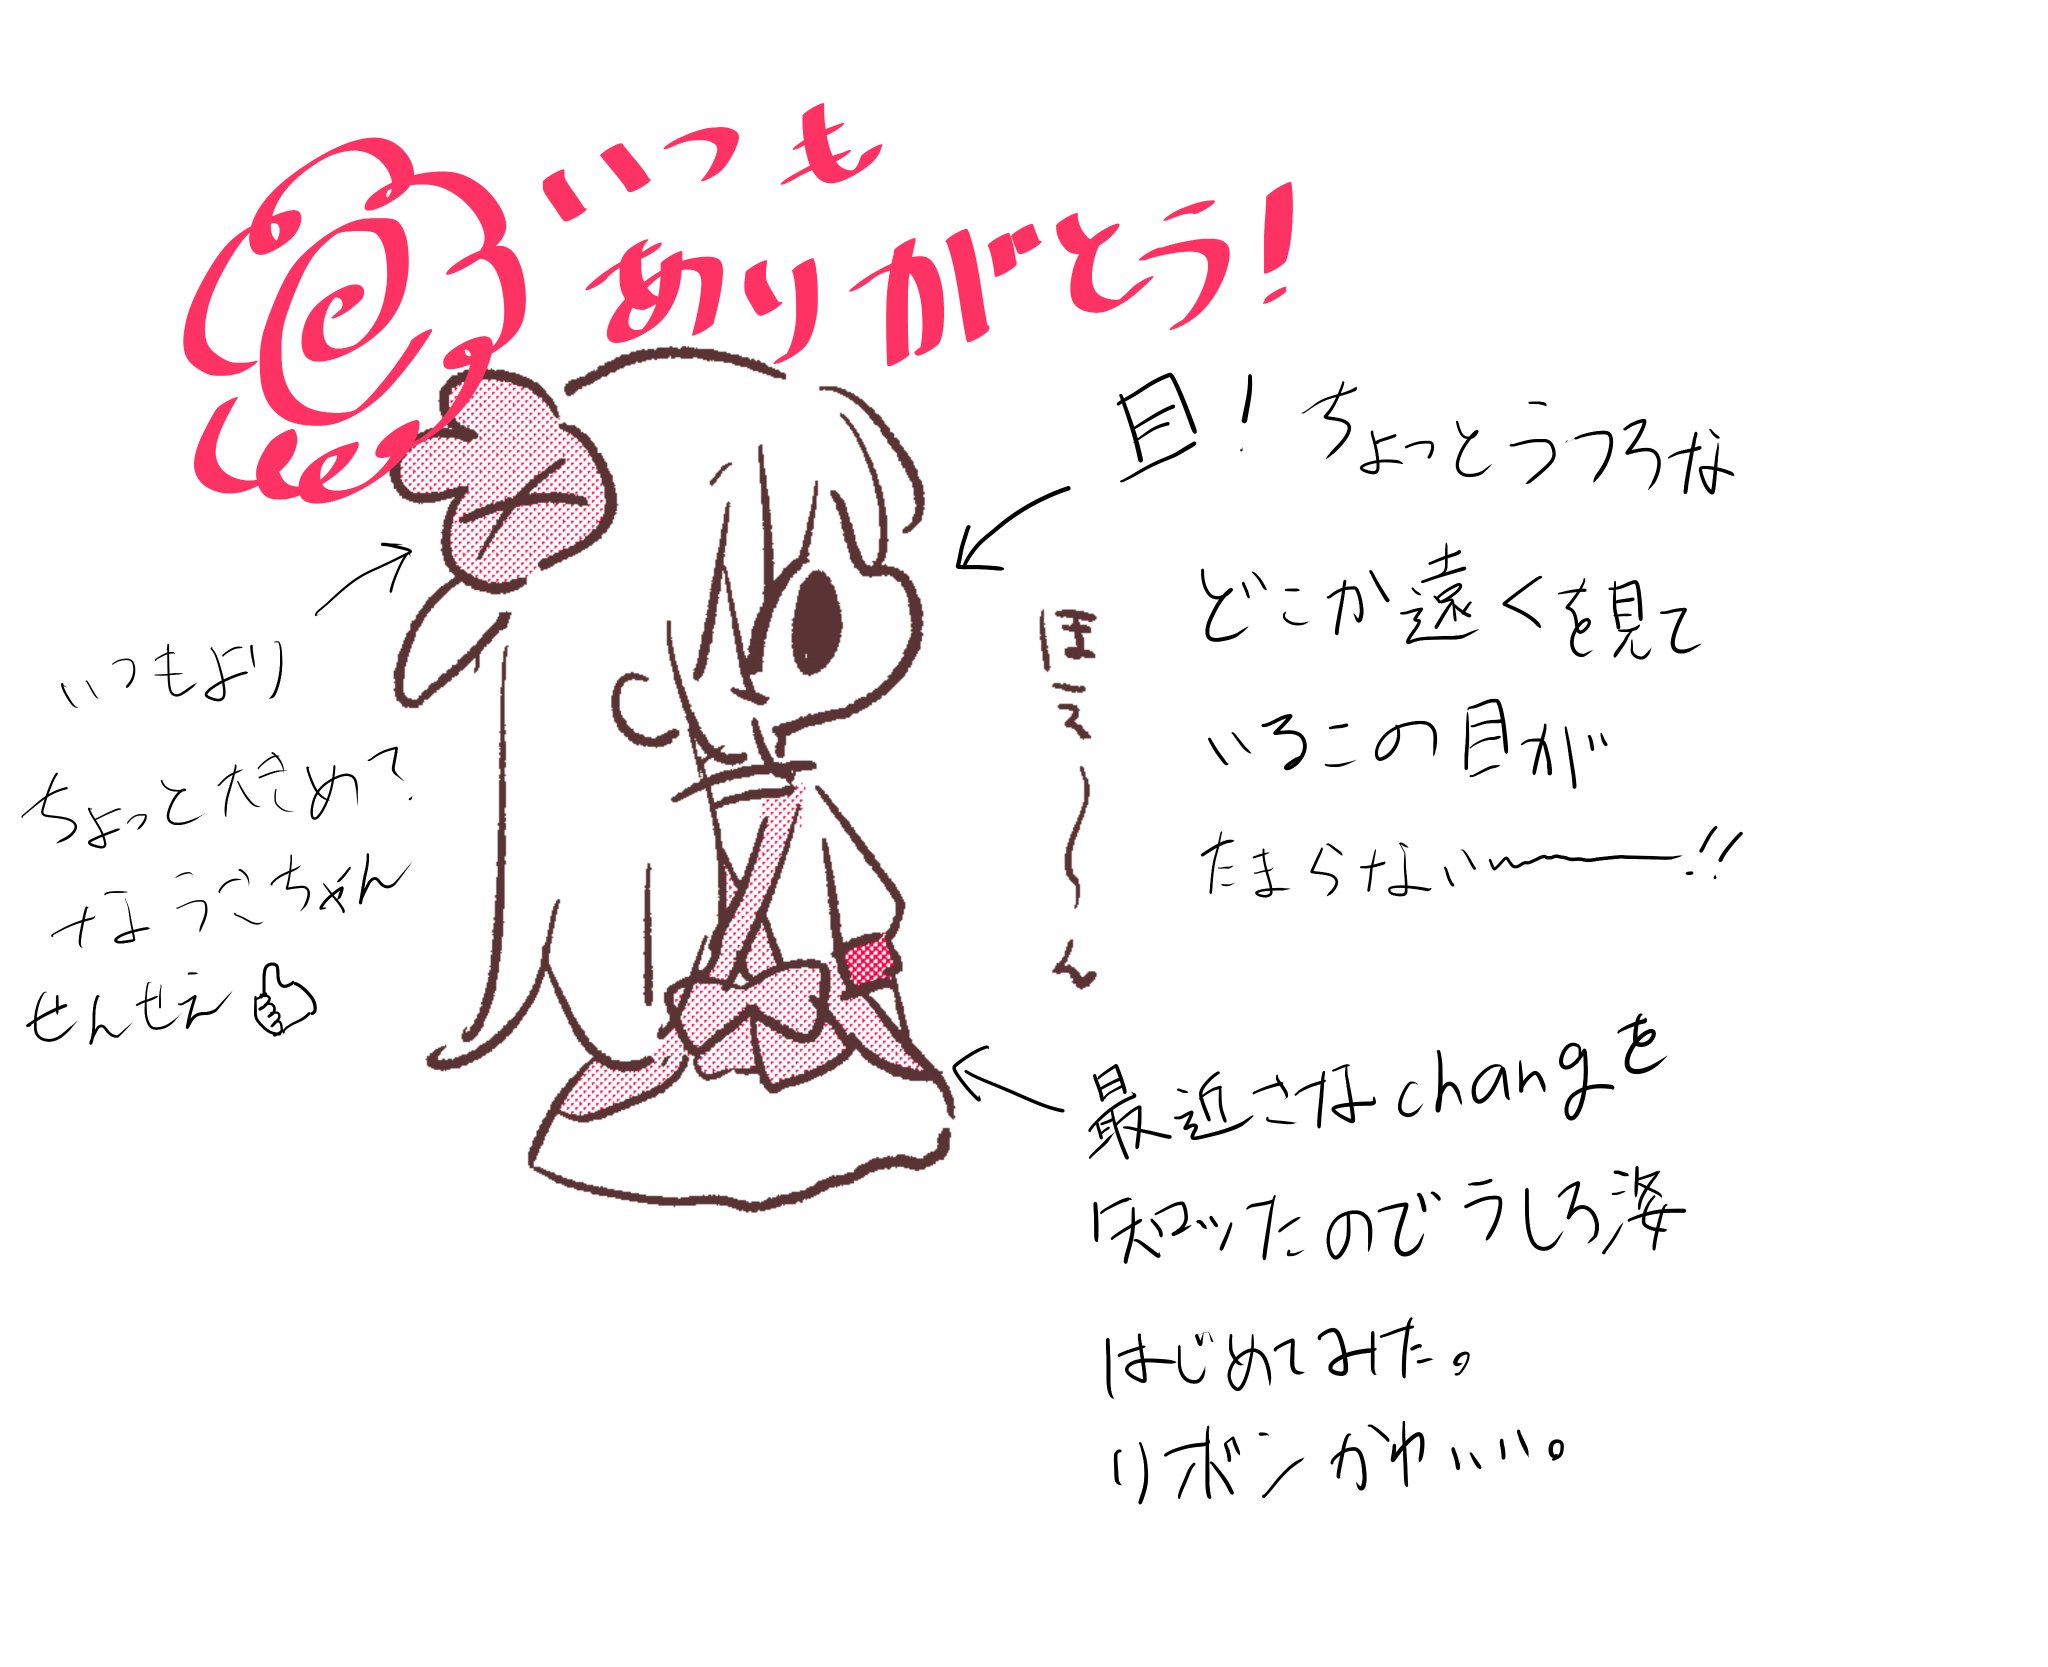 いつも
ありがとう!
目!ちょっとうつろな
どこか遠くを見て
いるこの目が
たまらないー!!
ほえ〜ん
いつもより
ちょっと大きめ?
なうごちゃん
せんせえ
最近さなchangを
知ッたのでうしろ姿
はじめてみた。
リボンかわいい。